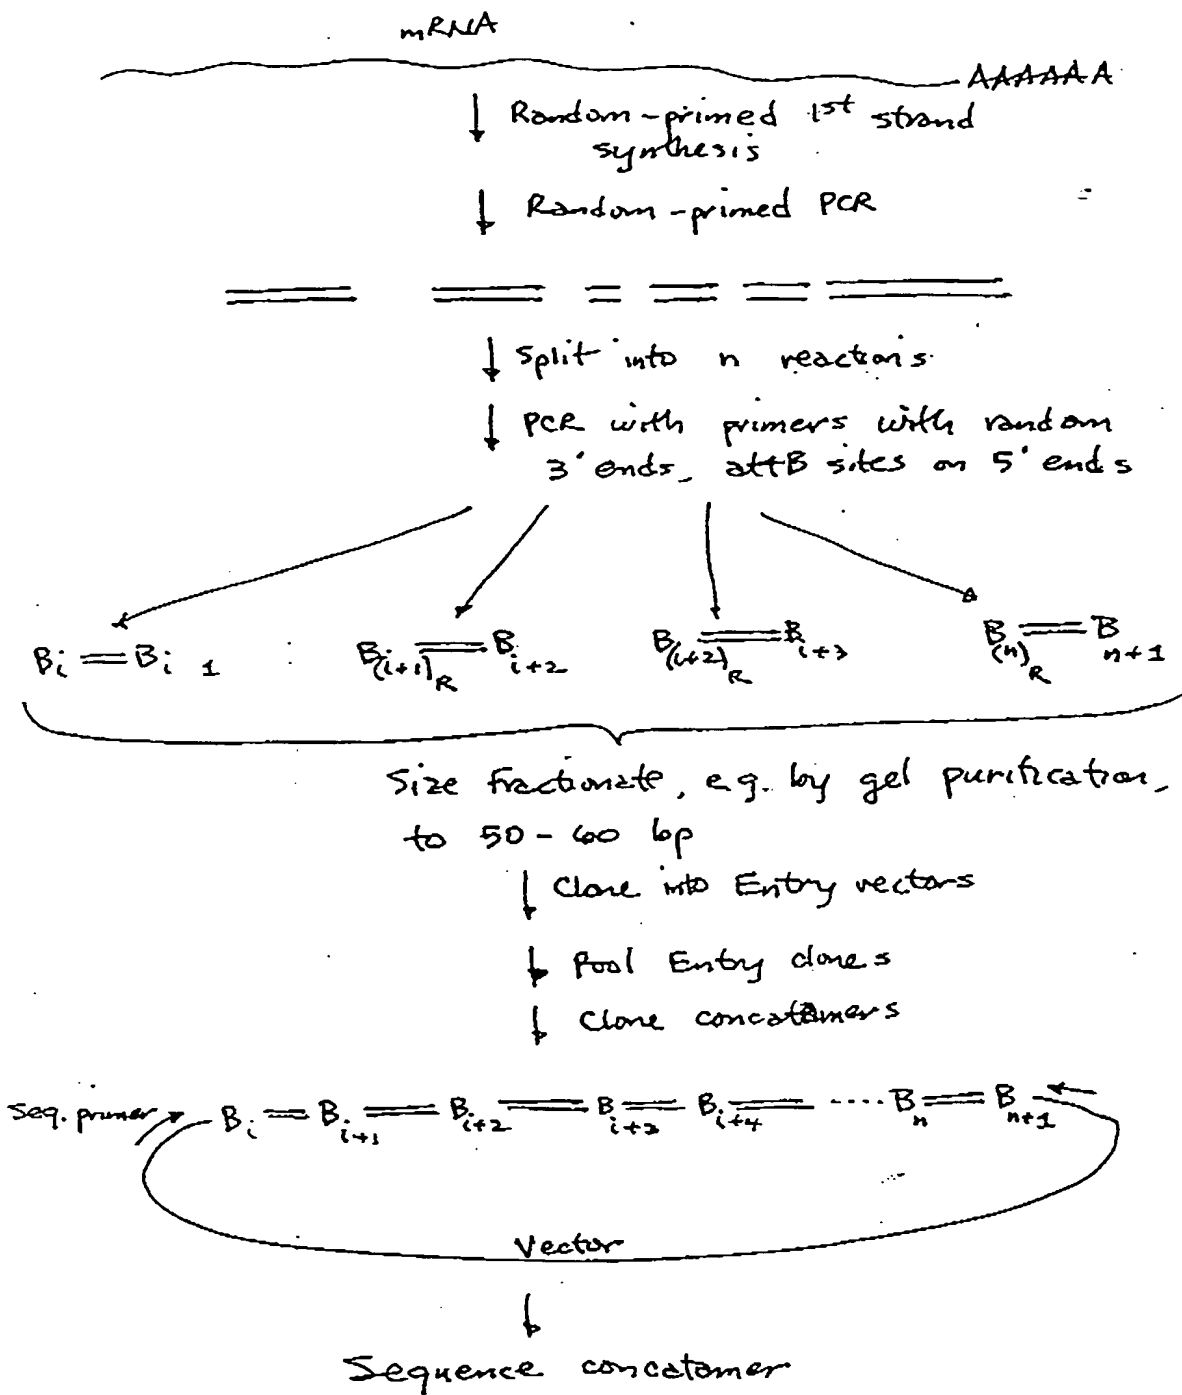 mRNA
AAAAAA
Random-primed 1st strand
synthesis
Random-primed PCR
Split into n reactions
PCR with primers with random
3' ends, attB sites on 5' ends
Bi Bi 1 B(i+1)R Bi+2 B(i+2)R Bi+3 B(n)R Bn+1
Size fractionate, e.g. by gel purification,
to 50-60 bp
Clone into Entry vectors
Pool Entry clones
Clone concatamers
Seq. primer Bi Bi+1 Bi+2 Bi+3 Bi+4 .... Bn Bn+1
Vector
Sequence concatamer